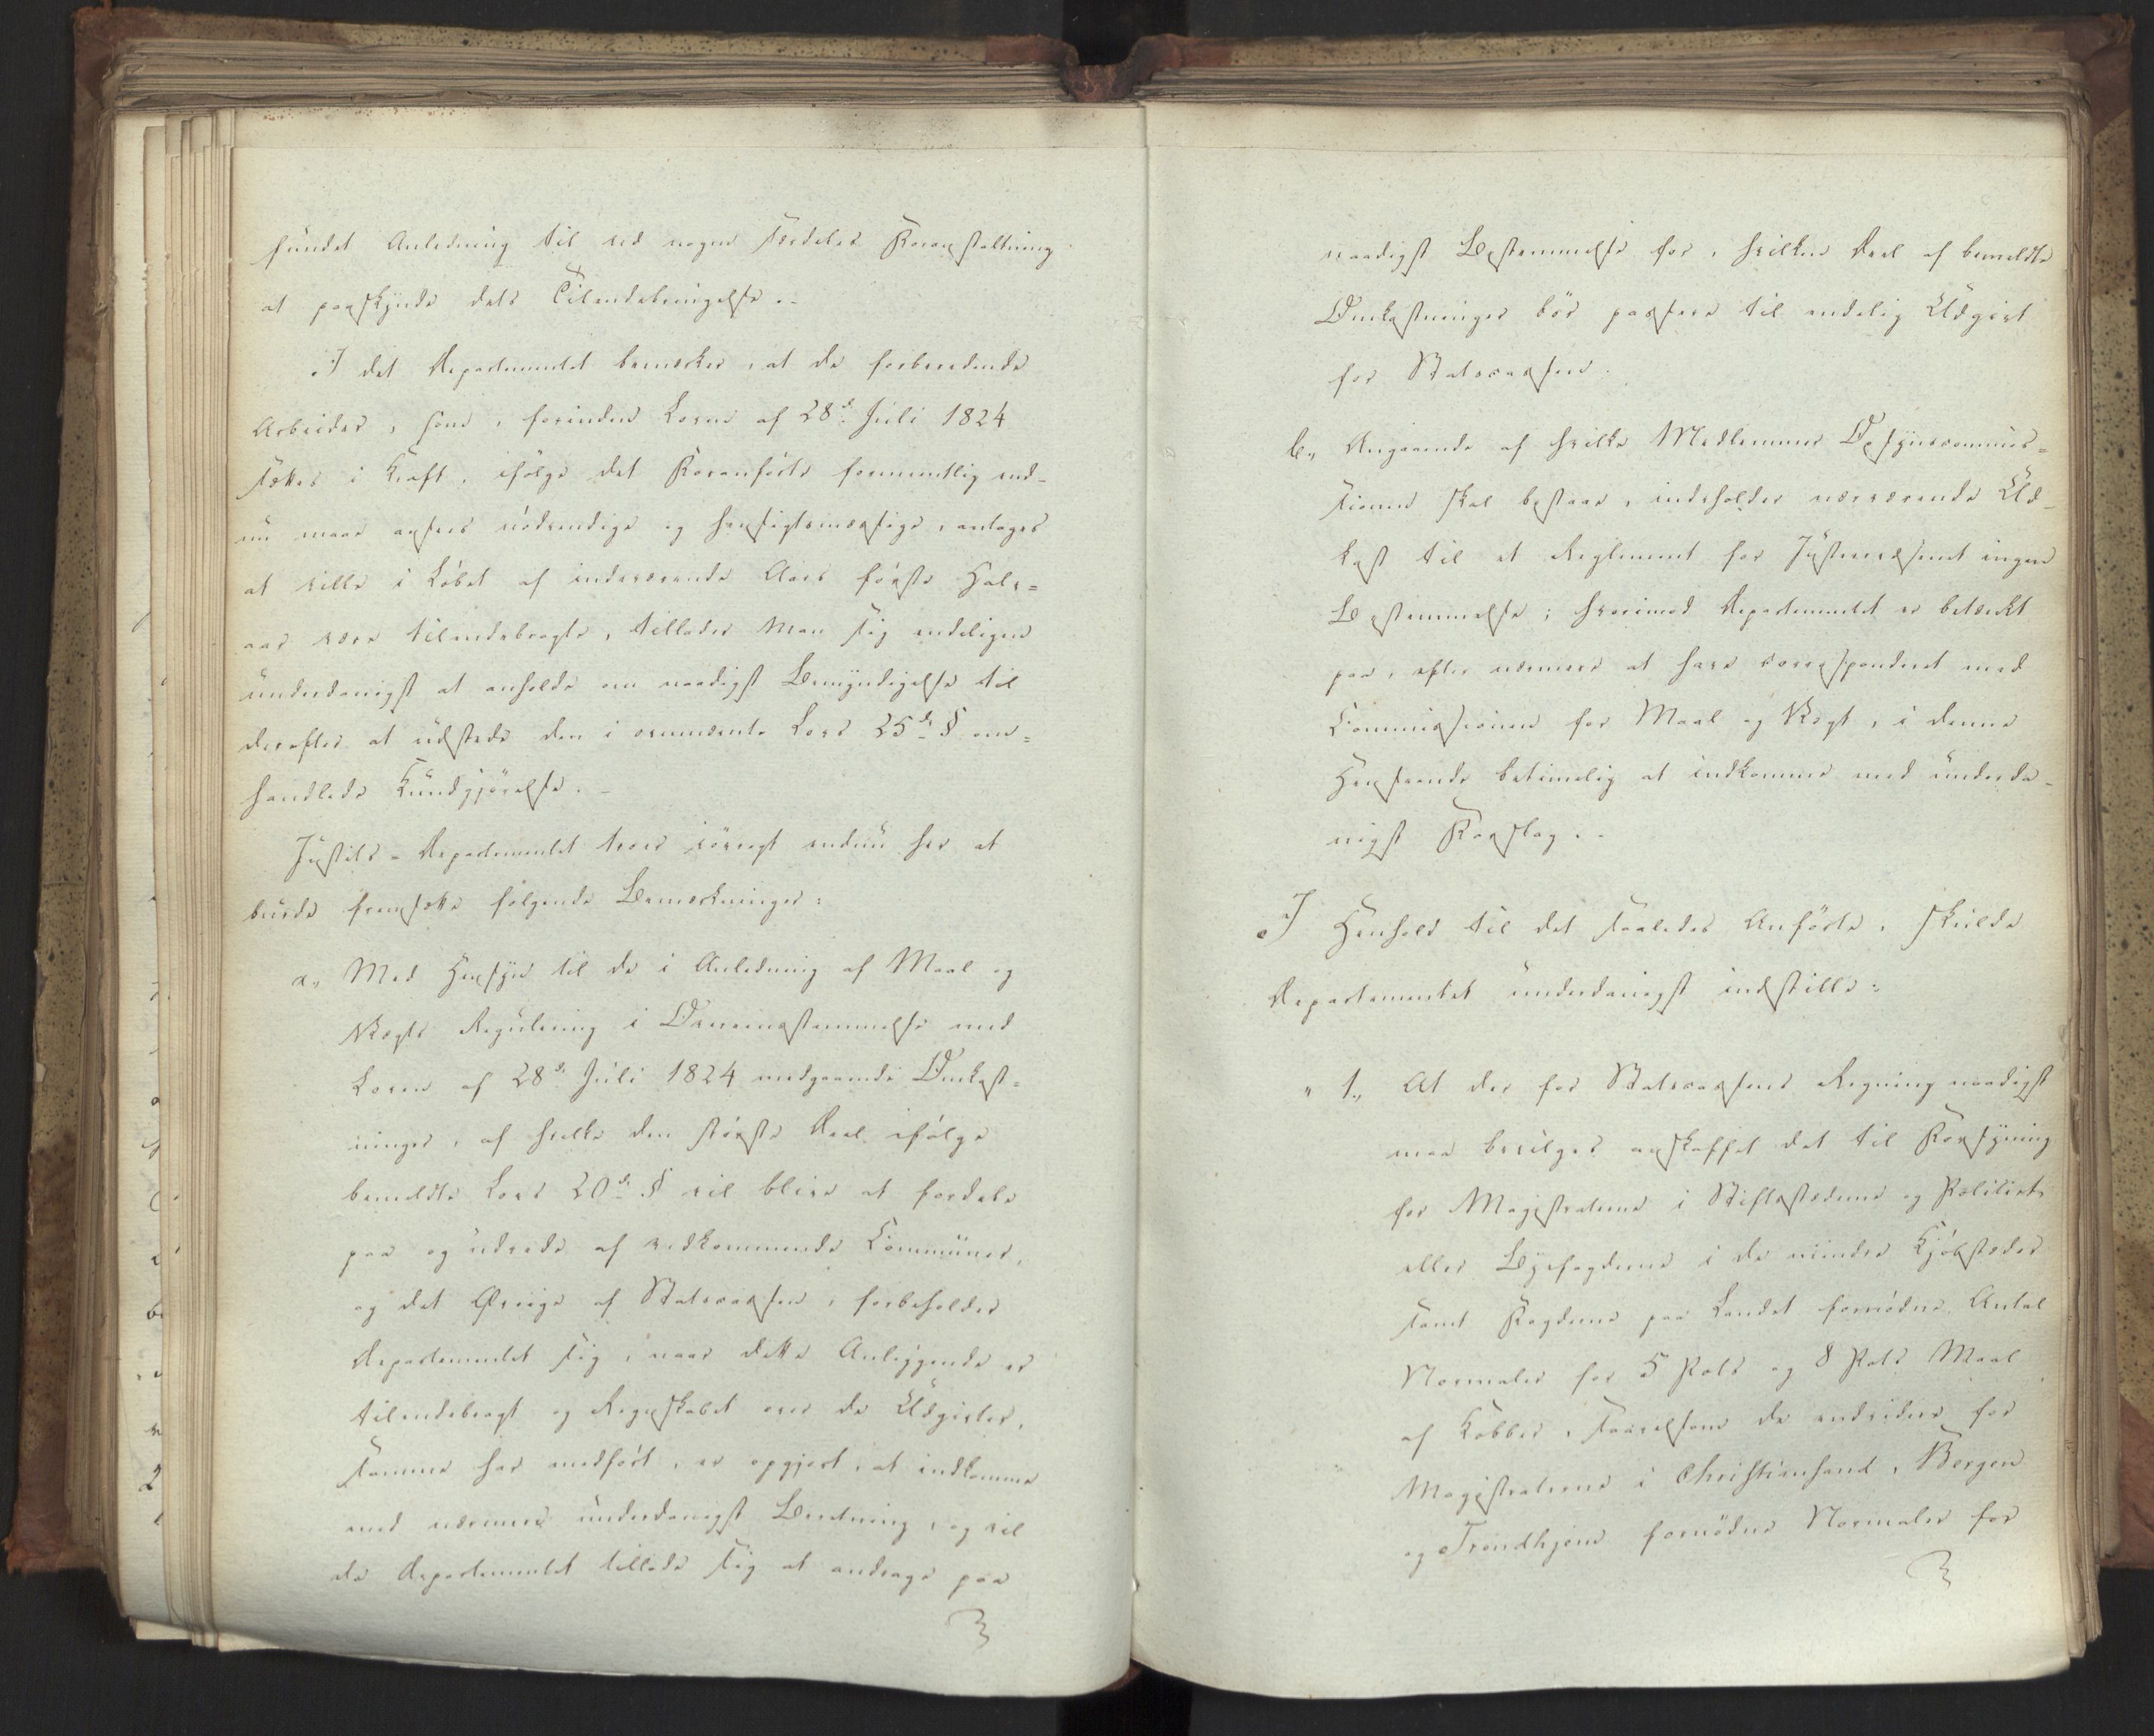 fundet Anledning til ved nogen særdeles Foranstaltning
at paaskynde dets Tilendebringelse. -
I det Departementet bemærker, at de forberedende
Arbeider, som, forinden Loven af 28de Juli 1824
sættes i Kraft, ifølge det Foranførte formeentlig end-
nu maae ansees nødvendige og hensigtsmæssige, antages
at ville i Løbet af indeværende Aars første Halv=
aar være tilendebragte, tillader Man sig endeligen
underdanigst at anholde om naadigst Bemyndigelse til
derefter at udstede den i ovennævnte Lovs 25de § om=
handlede Kundgjørelse. -
Justits-Departementet troer iøvrigt endnu her at
burde fremsætte følgende Bemærkninger:
a,, Med Hensyn til de i Anledning af Maal og
Vægts Regulering i Overeensstemmelse med
Loven af 28de Juli 1824 medgaaende Omkost=
ninger, af hvilke den største Deel ifølge
bemeldte Lovs 20de § vil blive at fordele
paa og udrede af vedkommende Communer,
og det Øvrige af Statscassen, forbeholder
Departementet sig, naar dette Anliggende er
tilendebragt og Regnskabet over de Udgifter,
samme har medført, er opgjort, at indkomme
med nærmere underdanigst Beretning, og vil
da Departementet tillade sig at andrage paa
naadigst Bestemmelse for, hvilken Deel af bemeldte
Omkostninger bør passere til endelig Udgivt
for Statscassen.
b,, Angaaende af hvilke Medlemmer Opsynscommis=
sionen skal bestaae, indeholder nærværende Ud-
kast til et Reglement for Justervæsenet ingen
Bestemmelse; hvorimod Departementet er betænkt
paa, efter nærmere at have correspenderet med
Commissionen for Maal og Vægt, i denne
Henseende betimelig at indkomme med underda-
nigst Forslag. -
I Henhold til det saaledes Anførte, skulde
Departementet underdanigst indstille:
" 1,, At der for Statscassens Regning naadigst
maa bevilges anskaffet det til Forsyning
for Magistraterne i Stiftsstæderne og Politiet
eller Byefogderne i de mindre Kjøbstæder
samt Fogderne paa Landet fornødne Antal
Normaler for 5 Pots og 8 Pots Maal
af Kobber, saavelsom de endvidere for
Magistraterne i Christiansand, Bergen
og Trondhjem fornødne Normaler for